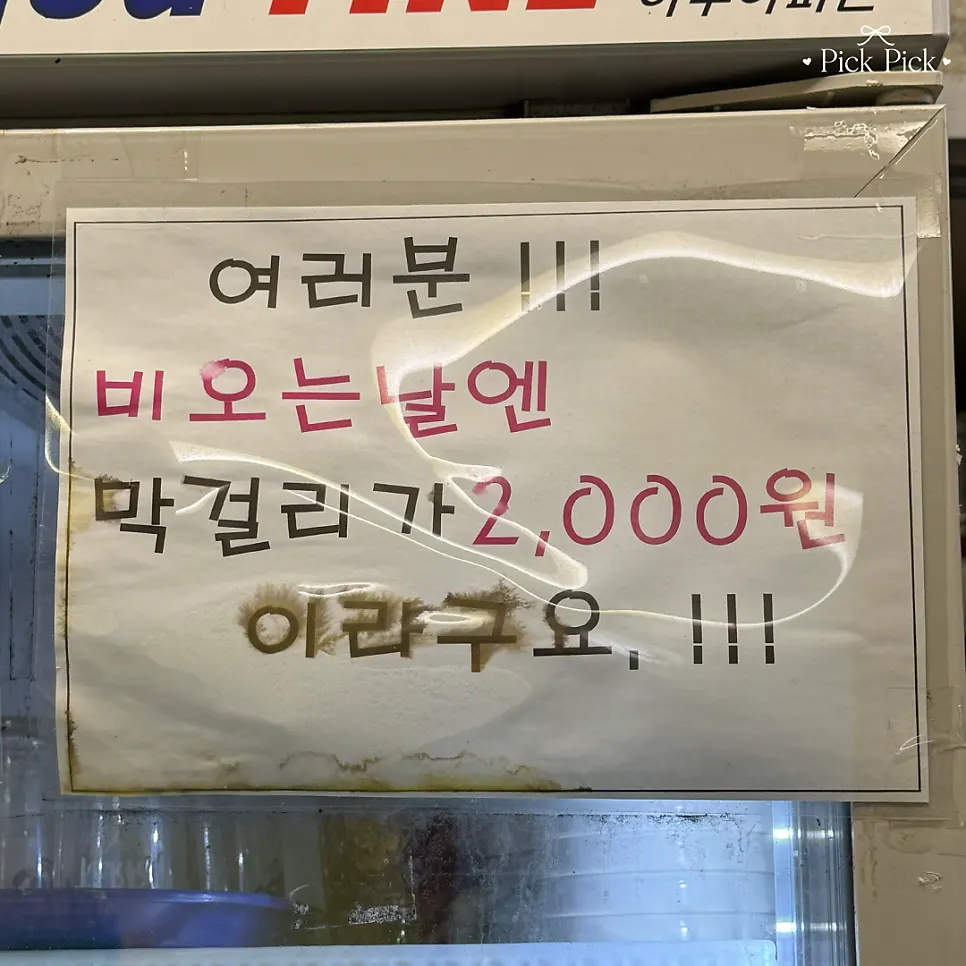 FINE
Pick Pick
여러분 !!!
비오는날엔
막걸리가2,000원
이라구요, !!!